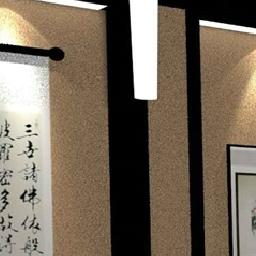 三世諸佛依般
波羅密多故得